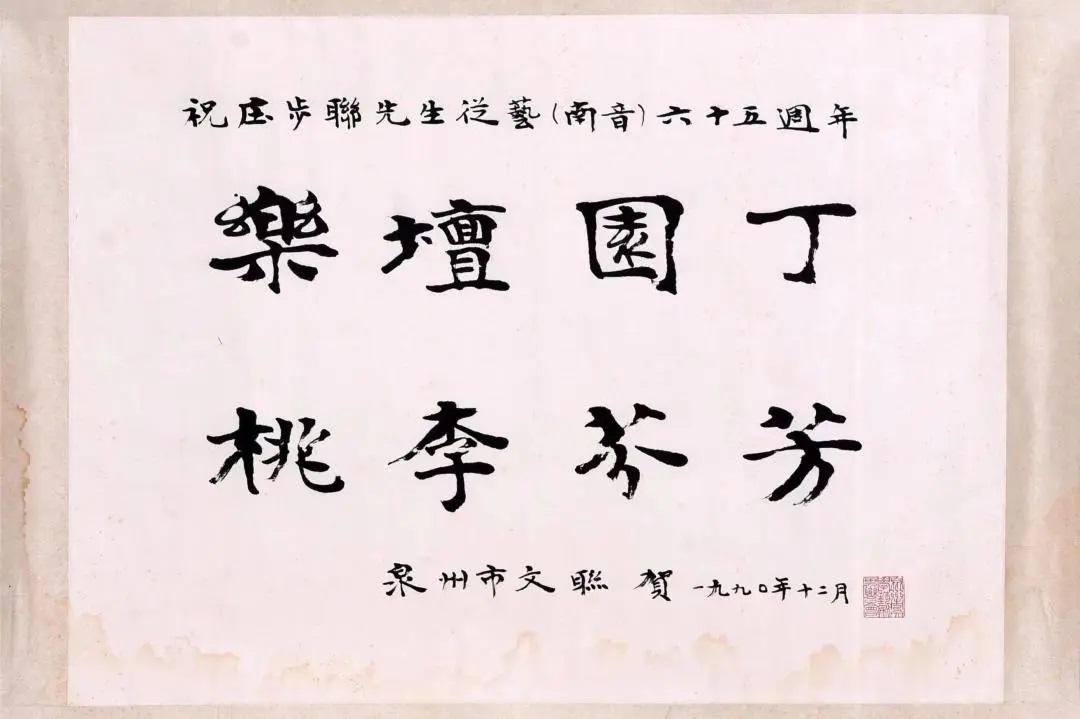 祝庄步聯先生従藝(南音)六十五週年
樂壇園丁
桃李芬芳
泉州市文聯 賀 一九九〇年十二月